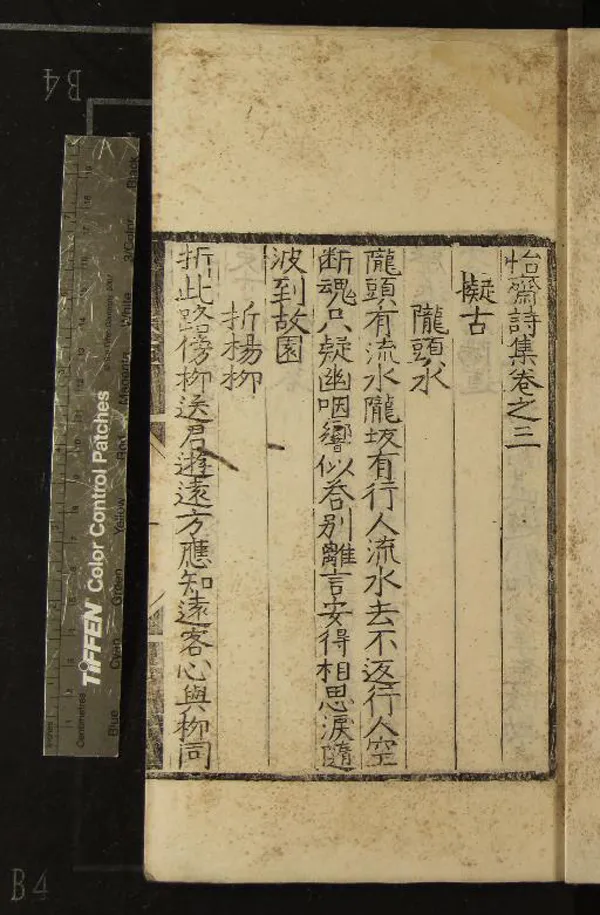 怡齋詩集卷之三
擬古
隴頭水
隴頭有流水隴坂有行人流水去不返行人空
断魂只疑幽咽響似吞別離言安得相思淚隨
波到故園
折楊柳
折此路傍柳送君遊遠方應知遠客心與柳同
B4
B4
TIFFEN Color Control Patches
Blue Cyan Green Yellow Red Magenta White 3/Color Black
Centimetres